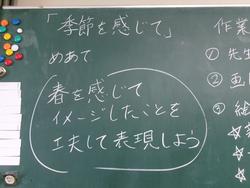 「季節を感じて」
めあて
春を感じて
イメージしたことを
工夫して表現しよう
作業
① 先生
②
③